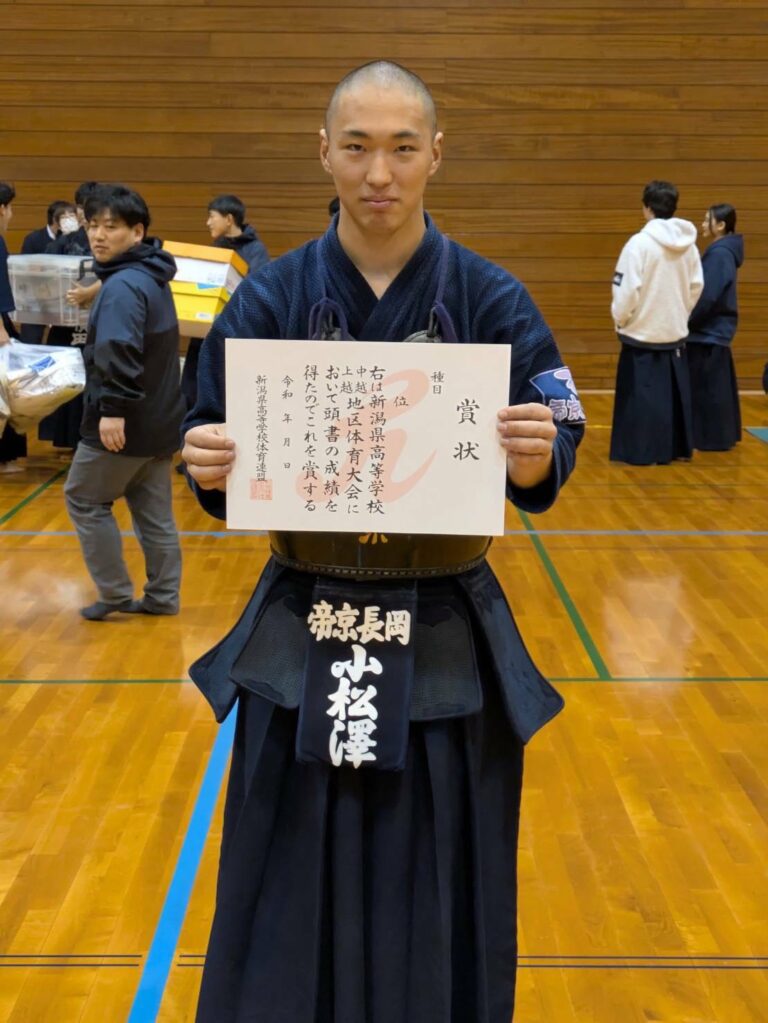 賞状
種目
位
右は新潟県高等学校
中越
上越
地区体育大会に
おいて頭書の成績を
得たのでこれを賞する
令和 年 月 日
新潟県高等学校体育連盟
帝京長岡
小松澤